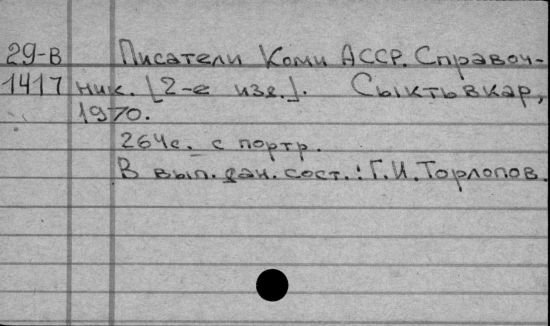 29-В Писатели Коми АССР. Справоч-
1417 ник. [2-е изд.]. Сыктывкар,
1970.
264с. с портр.
В вып. дан. сост.: Г.И. Торлопов.